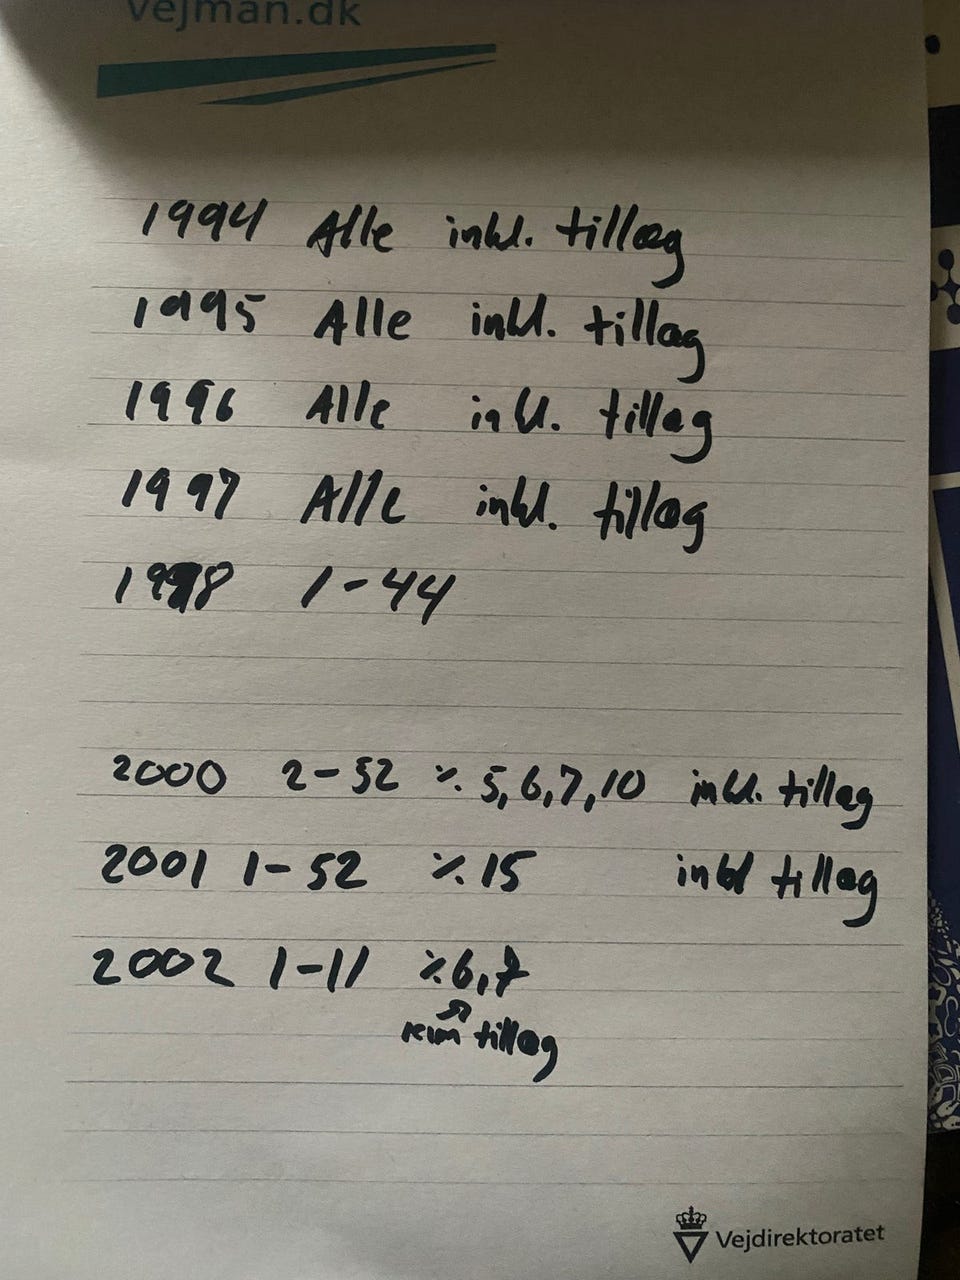 vejman.dk
1994 Alle inkl. tillæg
1995 Alle inkl. tillæg
1996 Alle inkl. tillæg
1997 Alle inkl. tillæg
1998 1-44
2000 2-52 ٪ 5,6,7,10 inkl. tillæg
2001 1-52 ٪ 15 inkl tillæg
2002 1-11 ٪ 6,7
kun tillæg
Vejdirektoratet